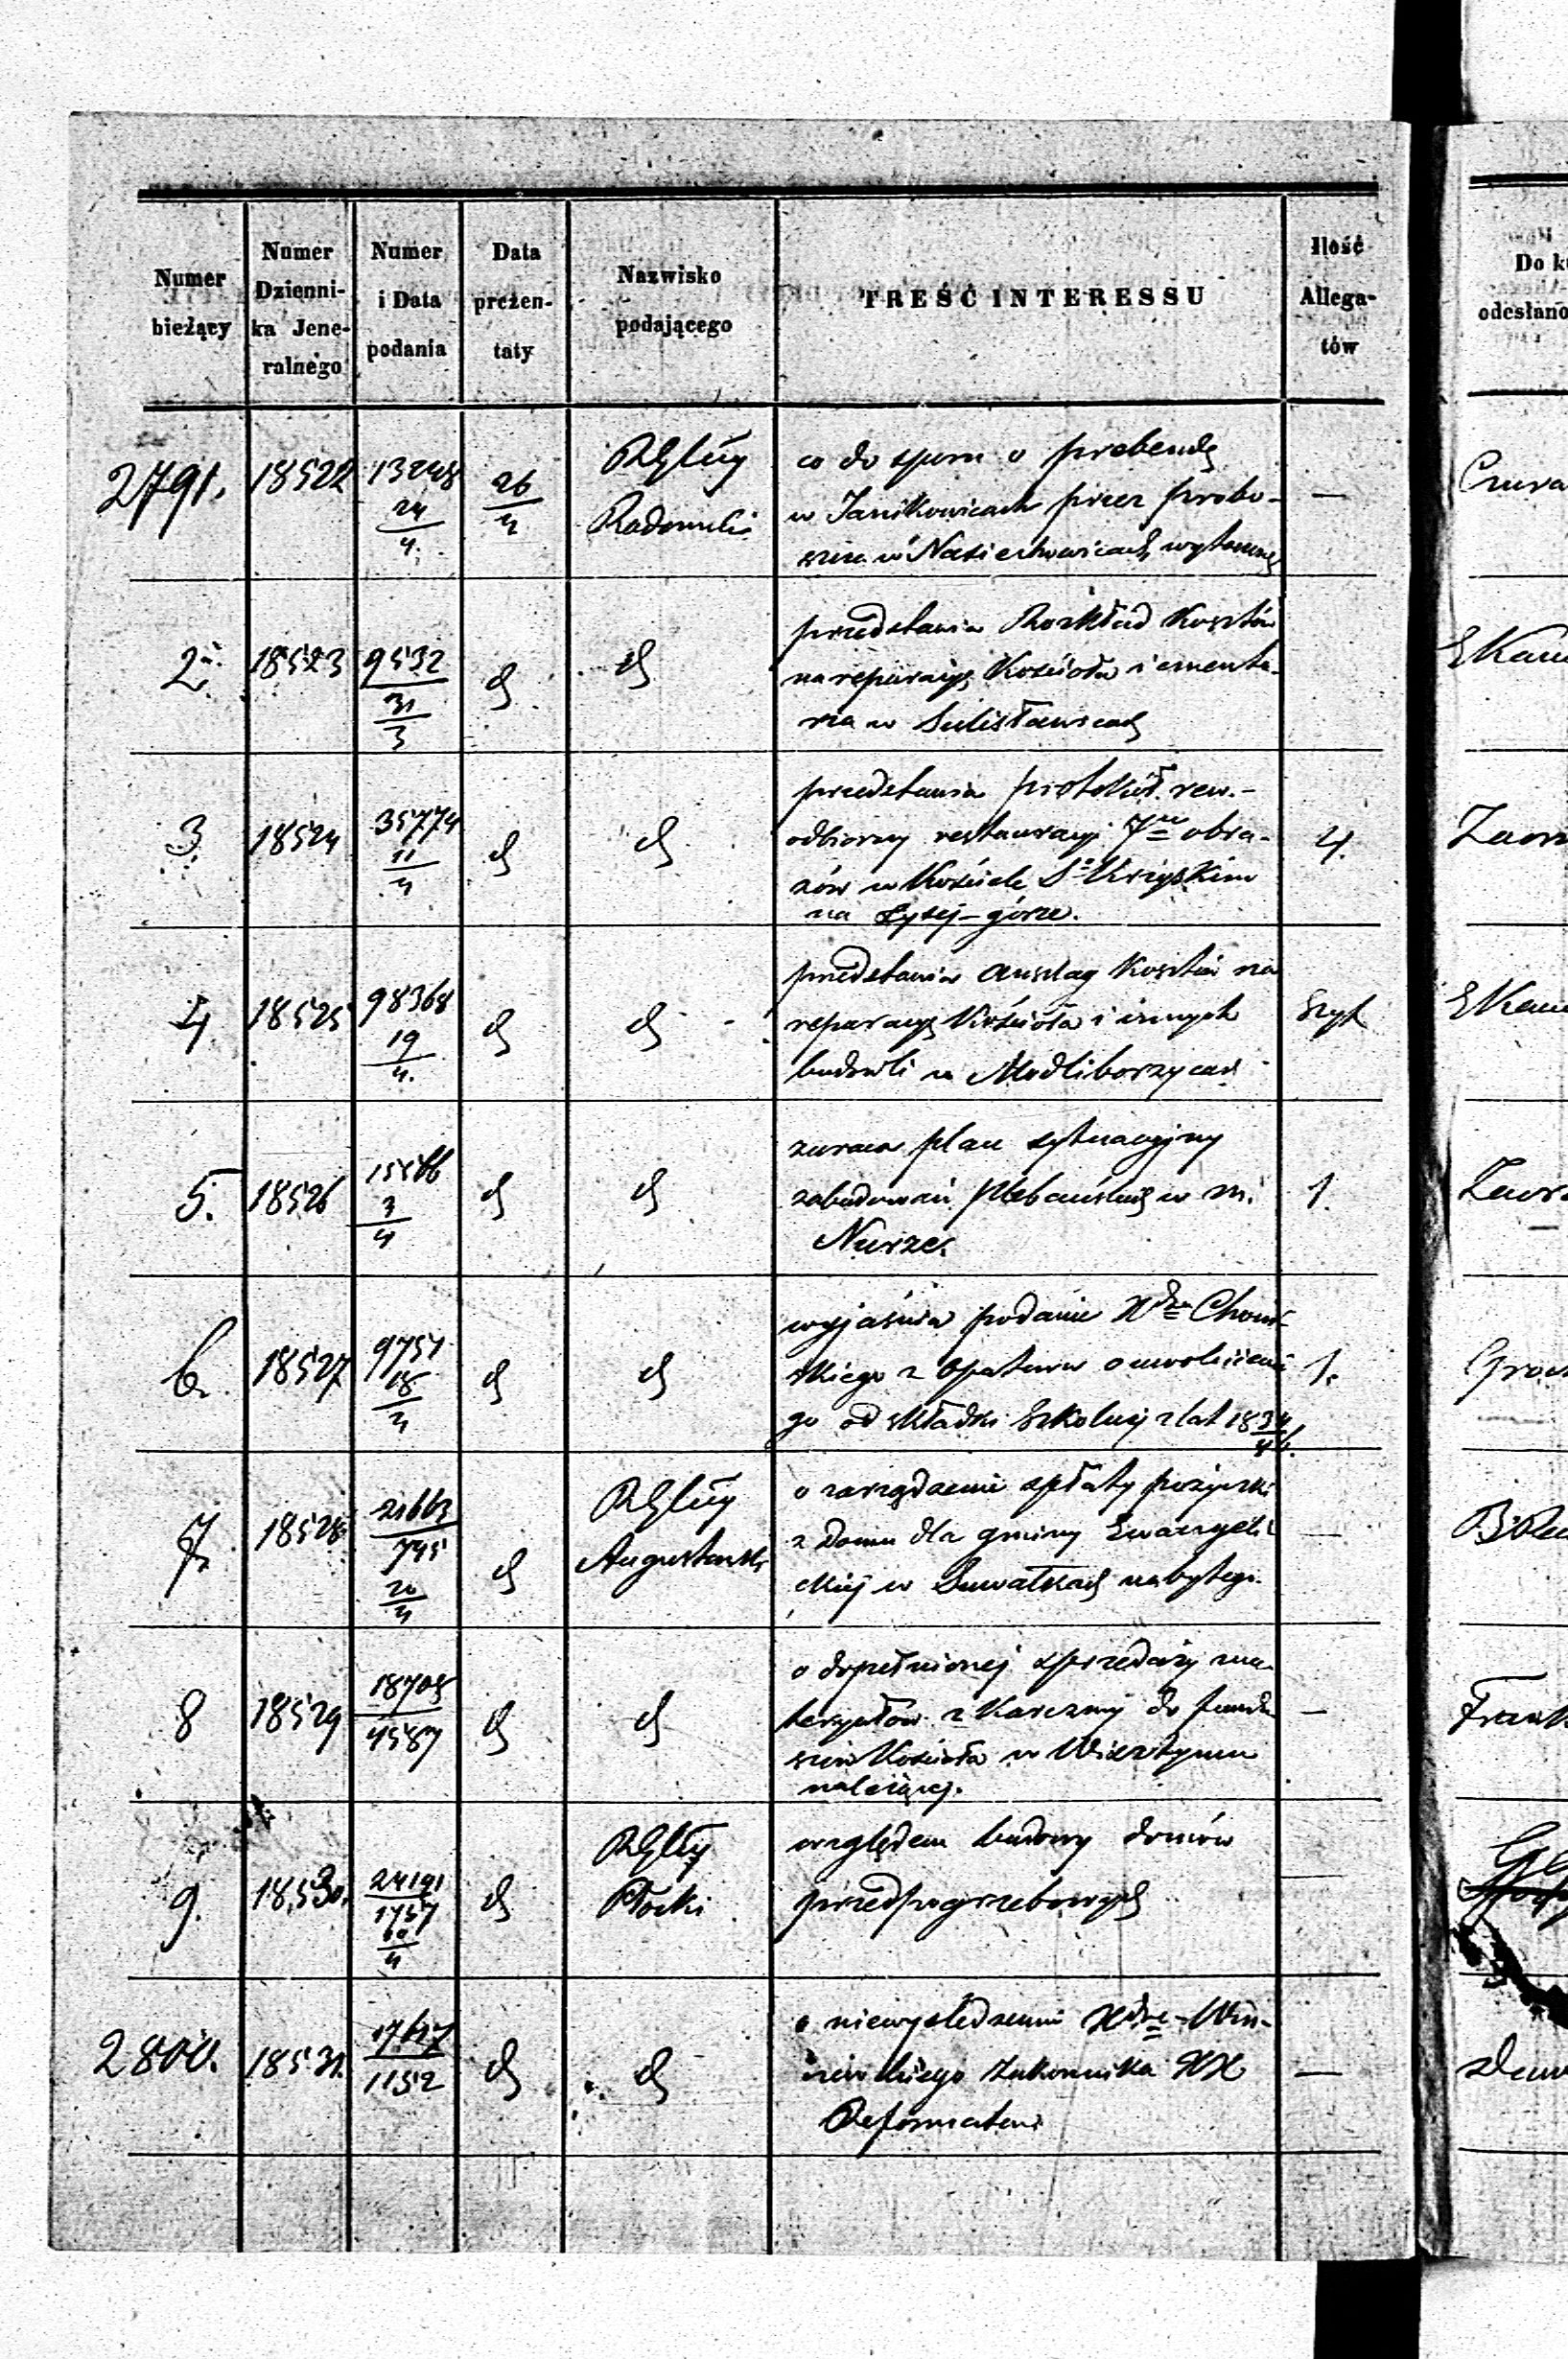 Numer bieżący
Numer Dzienni- ka Jene- ralnego
Numer i Data podania
Data prezen- taty
Nazwisko podającego
TREŚĆ INTERESSU
Ilość Allega- tów
Do
odesłano
2791. 18522 13248 24/4. 26/4 Radomski
co do sporu o prebendę
w Janikowicach przez probo-
—
2. 18523 9532 31/3 d d
przedstawia Rozkład Kosztów
na reparacyę Kościoła i cmenta-
rza w Sulisławicach
3. 18524 35774 11/4 d d
przedstawia protokół rew.-
odbiorczy restauracyi 7miu obra-
zów w Kościele S-o Krzyskim
na Łysej-górze.
4.
4 18525 98368 19/4. d d
przedstawia anszlag Kosztów na
reparacyę Kościoła i innych
budowli w Modliborzycach
Szyk
5. 18526 3/4 d d
zwraca plan sytuacyjny
zabudowań plebańskich w m.
Nurze.
1.
6. 18527 9757 18/4 d d
wyjaśnia podanie Xdza
skiego z Opatowa o uwolnienie
go od składki Szkolnej z lat 1834/
1.
7. 18528 21663/795 20/4 d Augustowski
o zarządzenie spłaty pożyczki
z Domu dla gminy Ewangeli
ckiej w Suwałkach nabytego.
—
8 18529 18705/4587 d d
o dopełnionej sprzedaży ma-
teryałów z Karczmy do fundu
szów Kościoła w Wisztyncu
należącej.
—
9. 18530. 24191/1757 10/4 d Płocki
względem budowy domów
przedpogrzebowych
2800. 18531. 17617/1152 d d
o niewyśledzeniu Xdza Wisz-
niewskiego Zakonnika XX
Reformatów
—